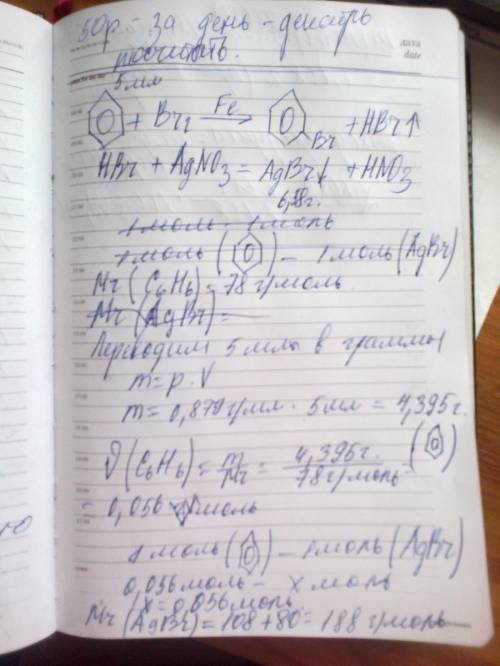 50р. - за день - декабрь
посчитать.
дата
date
5 мл
+ Br₂ Fe → Br + HBr↑
HBr + AgNO₃ = AgBr↓ + HNO₃
1 моль - 1 моль
1 моль ( ) - 1 моль (AgBr)
Mr (C₆H₆) = 78 г/моль
Mr (AgBr) =
Переводим 5 мл в граммы
m = ρ · V
m = 0,879 г/мл · 5 мл = 4,395 г.
ν (C₆H₆) = m/Mr = 4,395 г. / 78 г/моль =
= 0,056 моль
1 моль ( ) - 1 моль (AgBr)
0,056 моль - x моль
x = 0,056 моль
Mr (AgBr) = 108 + 80 = 188 г/моль